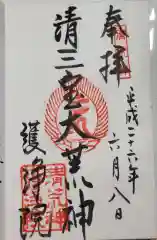 奉拝
平成二十六年六月八日
清三宝大荒神
護浄院
清荒神